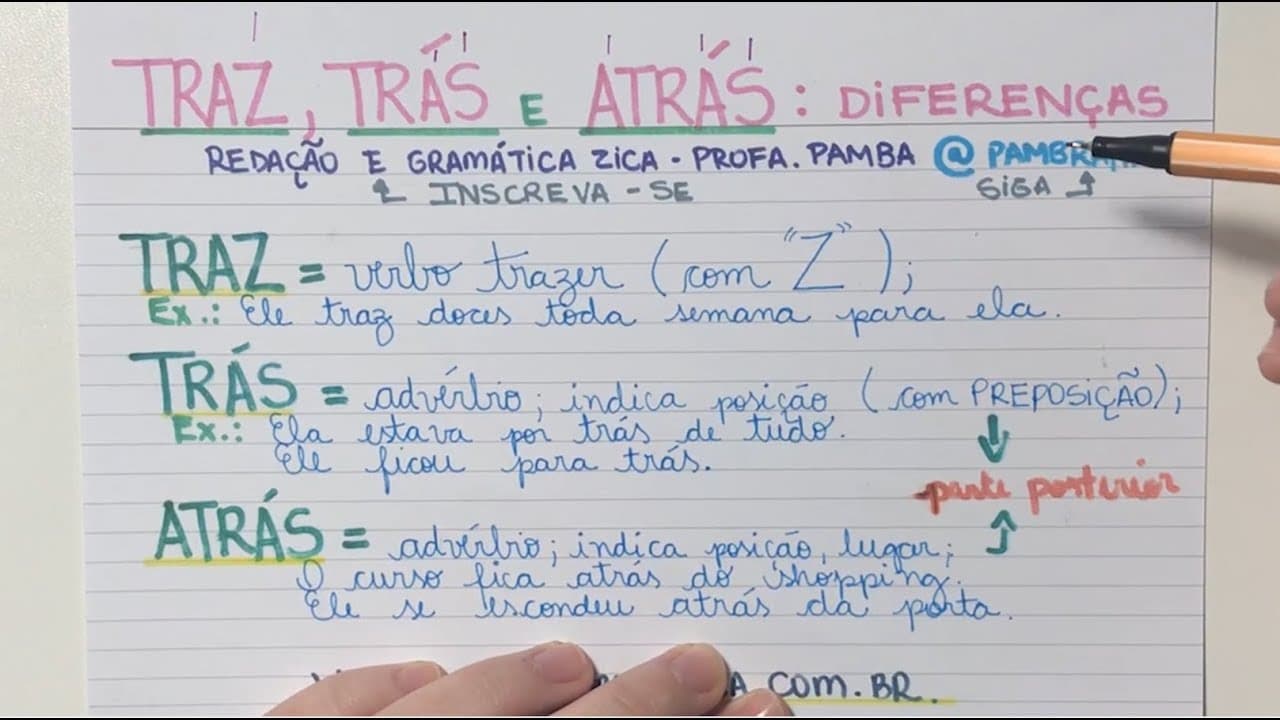 TRAZ, TRÁS E ATRÁS: DIFERENÇAS
REDAÇÃO E GRAMÁTICA ZICA - PROFA. PAMBA @
INSCREVA-SE SIGA
TRAZ = verbo trazer (com "Z");
Ex.: Ele traz doces toda semana para ela.
TRÁS = advérbio; indica posição (com PREPOSIÇÃO);
Ex.: Ela estava por trás de tudo.
Ele ficou para trás.
parte posterior
ATRÁS = advérbio; indica posição, lugar;
O curso fica atrás do shopping.
Ele se escondeu atrás da porta.
COM.BR.